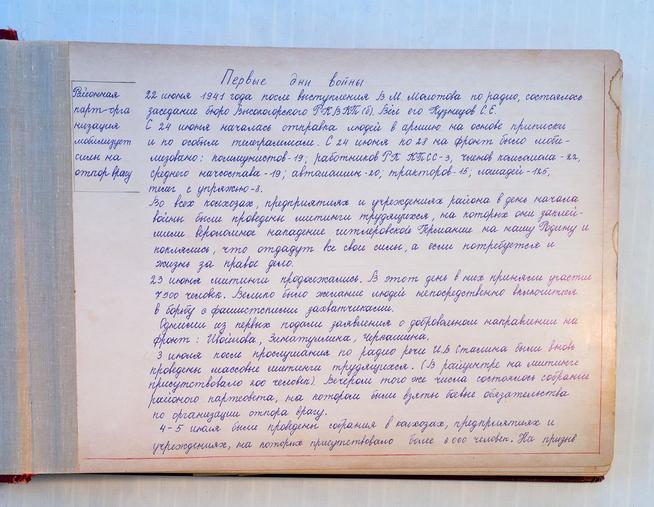 Первые дни войны
Районная
парт-орга
низация
мобилизует
силы на
отпор врагу
22 июня 1941 года после выступления В.М. Молотова по радио, состоялось
заседание бюро Высокогорского РК ВКП(б). Вёл его Кузнецов С.Е.
С 24 июня началась отправка людей в армию на основе приписки
и по особым телеграммам. С 24 июня по 28 на фронт было моби-
лизовано: коммунистов-19; работников РК КПСС-3, членов комсомола-22,
среднего начсостава-19; автомашин-20; тракторов-15; лошадей-125,
телег с упряжью-8.
Во всех колхозах, предприятиях и учреждениях района в день начала
войны были проведены митинги трудящихся, на которых они заклей-
мили вероломное нападение гитлеровской Германии на нашу Родину и
поклялись, что отдадут все свои силы, а если потребуется и
жизнь за правое дело.
23 июня митинги продолжались. В этот день в них приняли участие
7900 человек. Велико было желание людей непосредственно включиться
в борьбу с фашистскими захватчиками.
Одними из первых подали заявления о добровольном направлении на
фронт: Зинатуллина,
3 июля после прослушания по радио речи И.В. Сталина были вновь
проведены массовые митинги трудящихся. (В райцентре на митинге
присутствовало 200 человек). Вечером того же числа состоялось собрание
районого партсовета, на котором были взяты боевые обязательства
по организации отпора врагу.
4-5 июля были проведены собрания в колхозах, предприятиях и
учреждениях, на которых присутствовало более 6000 человек. На призыв